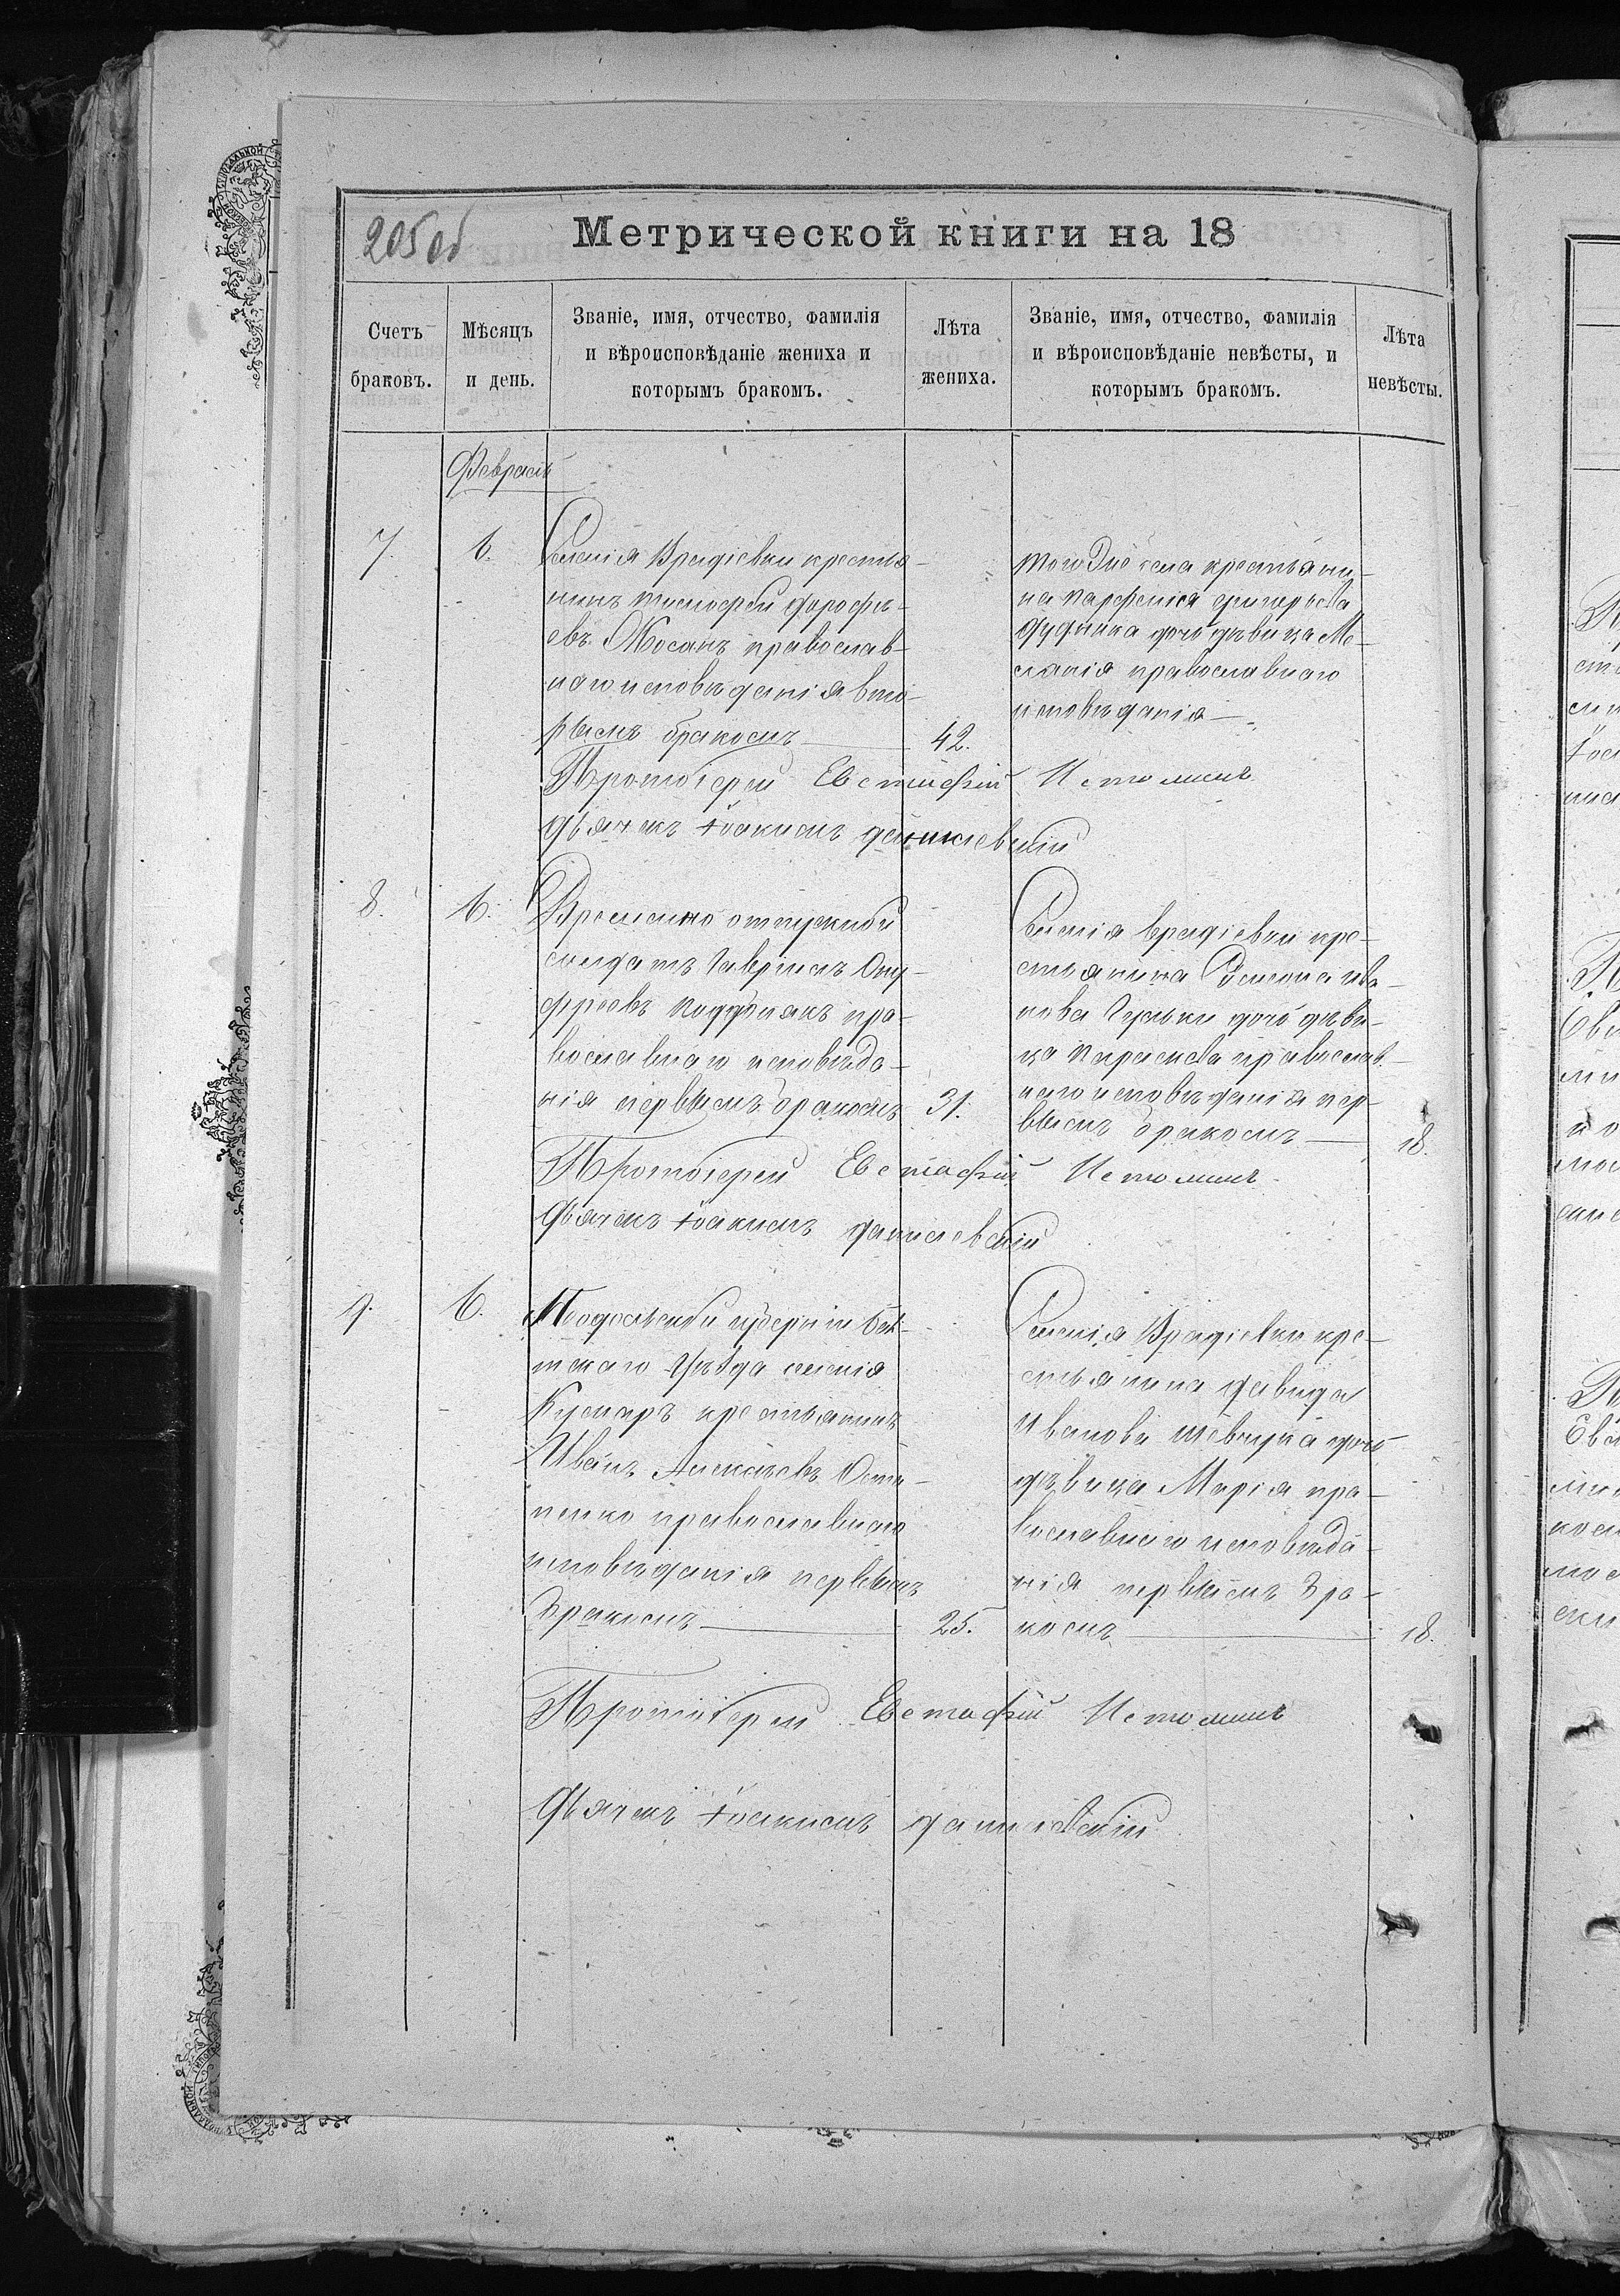 205 об
Метрической книги на 18
Счетъ браковъ.
Мѣсяцъ и день.
Званіе, имя, отчество, фамилія
и вѣроисповѣданіе жениха и
которымъ бракомъ.
Лѣта
жениха.
Званіе, имя, отчество, фамилія
и вѣроисповѣданіе невѣсты, и
которымъ бракомъ.
Лѣта
невѣсты.
Февраль
7.
6.
Селенія Врадіевки крестья-
нинъ Тимофей Дорофѣ-
евъ Жосанъ православ-
наго исповѣданія вто-
рымъ бракомъ
42.
того же села крестьяни-
на Парфенія Григорьева
Дудника дочь дѣвица Ме-
ланія православнаго
исповѣданія
Протоіерей Евстафій Истоминъ
Дьячекъ Іоакимъ Данилевскій
8.
6.
Временно отпускной
солдатъ Гавріилъ Ону-
фріевъ православнаго исповѣда-
нія первымъ бракомъ
31.
Селенія Врадіевки кре-
стьянина Симеона Ива-
нова дочь дѣви-
ца Параскева православ-
наго исповѣданія пер-
вымъ бракомъ
18.
Протоіерей Евстафій Истоминъ
Дьячекъ Іоакимъ Данилевскій
9.
6.
Подольской губерніи Бал-
тскаго уѣзда селенія
Кумаръ крестьянинъ
Иванъ Алексѣевъ Оста-
пенко православнаго
исповѣданія первымъ
бракомъ
25.
Селенія Врадіевки кре-
стьянина Давида
Иванова Шевчука дочь
дѣвица Марія пра-
вославнаго исповѣда-
нія первымъ бра-
комъ
18.
Протоіерей Евстафій Истоминъ
Дьячекъ Іоакимъ Данилевскій